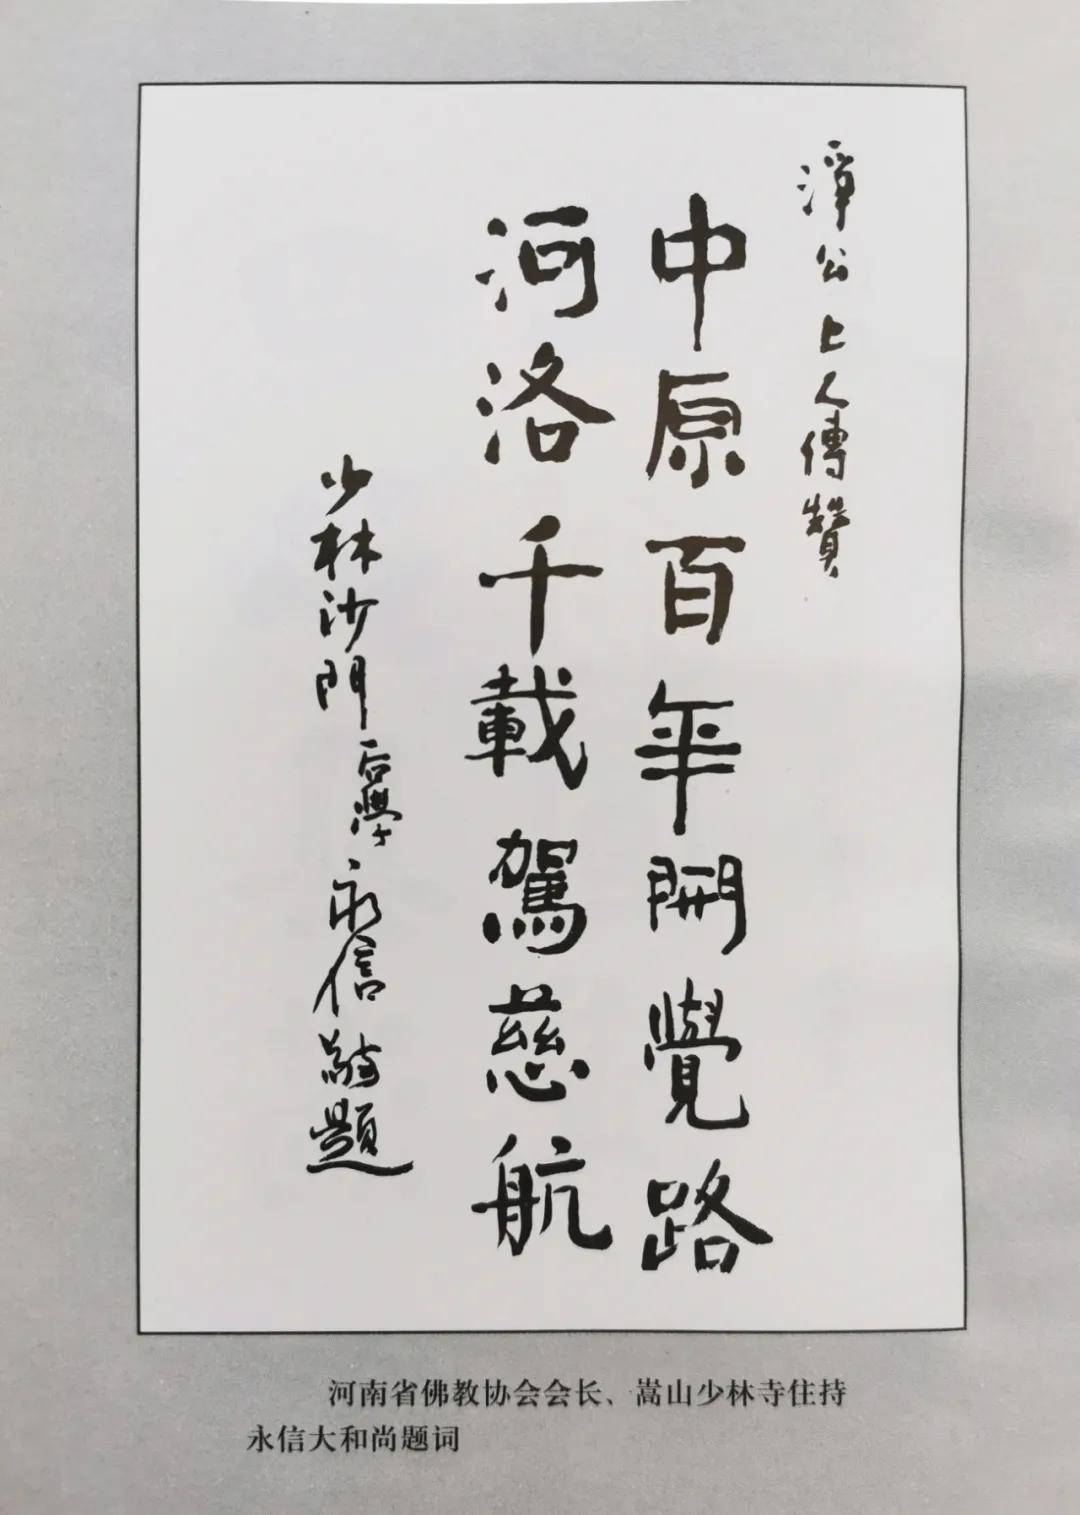 淨公上人傳贊
中原百年開覺路
河洛千載駕慈航
少林沙門后學永信敬題
河南省佛教协会会长、嵩山少林寺住持
永信大和尚题词